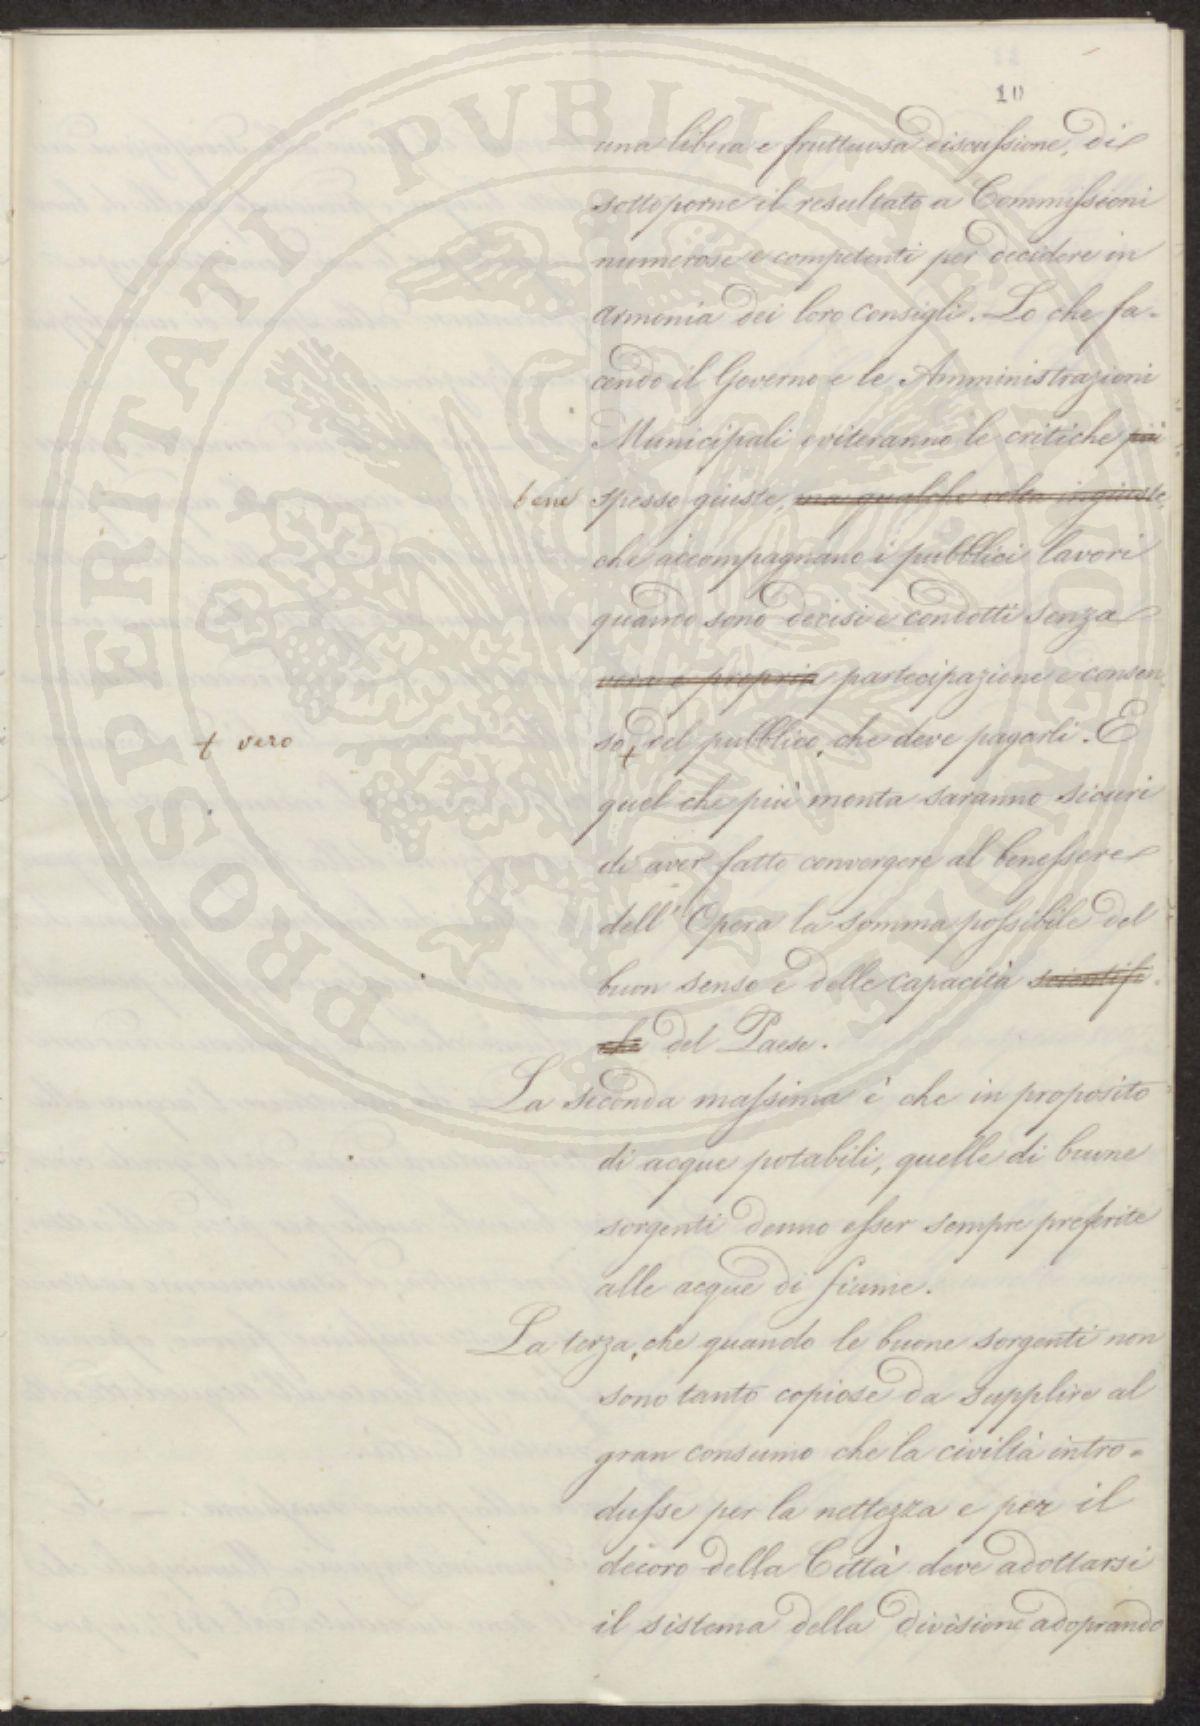 10
una libera e fruttuosa discussione, di
sottoporne il resultato a Commissioni
numerose e competenti per decidere in
armonia dei loro consigli. Lo che fa-
cendo il Governo e le Amministrazioni
Municipali eviteranno le critiche più
bene spesso giuste, ma qualche volta ingiuste,
che accompagnano i pubblici lavori
quando sono decisi e condotti senza
vera e propria partecipazione e consen
+ vero
so + del pubblico, che deve pagarli. E
quel che più monta saranno sicuri
di aver fatto convergere al benessere
dell'Opera la somma possibile del
buon senso e delle capacità scientifi-
che del Paese.
La seconda massima è che in proposito
di acque potabili, quelle di buone
sorgenti denno esser sempre preferite
alle acque di fiume.
La terza, che quando le buone sorgenti non
sono tanto copiose da supplire al
gran consumo che la civiltà intro-
dusse per la nettezza e per il
decoro della Città deve adottarsi
il sistema della divisione adoprando
PROSPERITATI PVBLICAE AVGENDAE